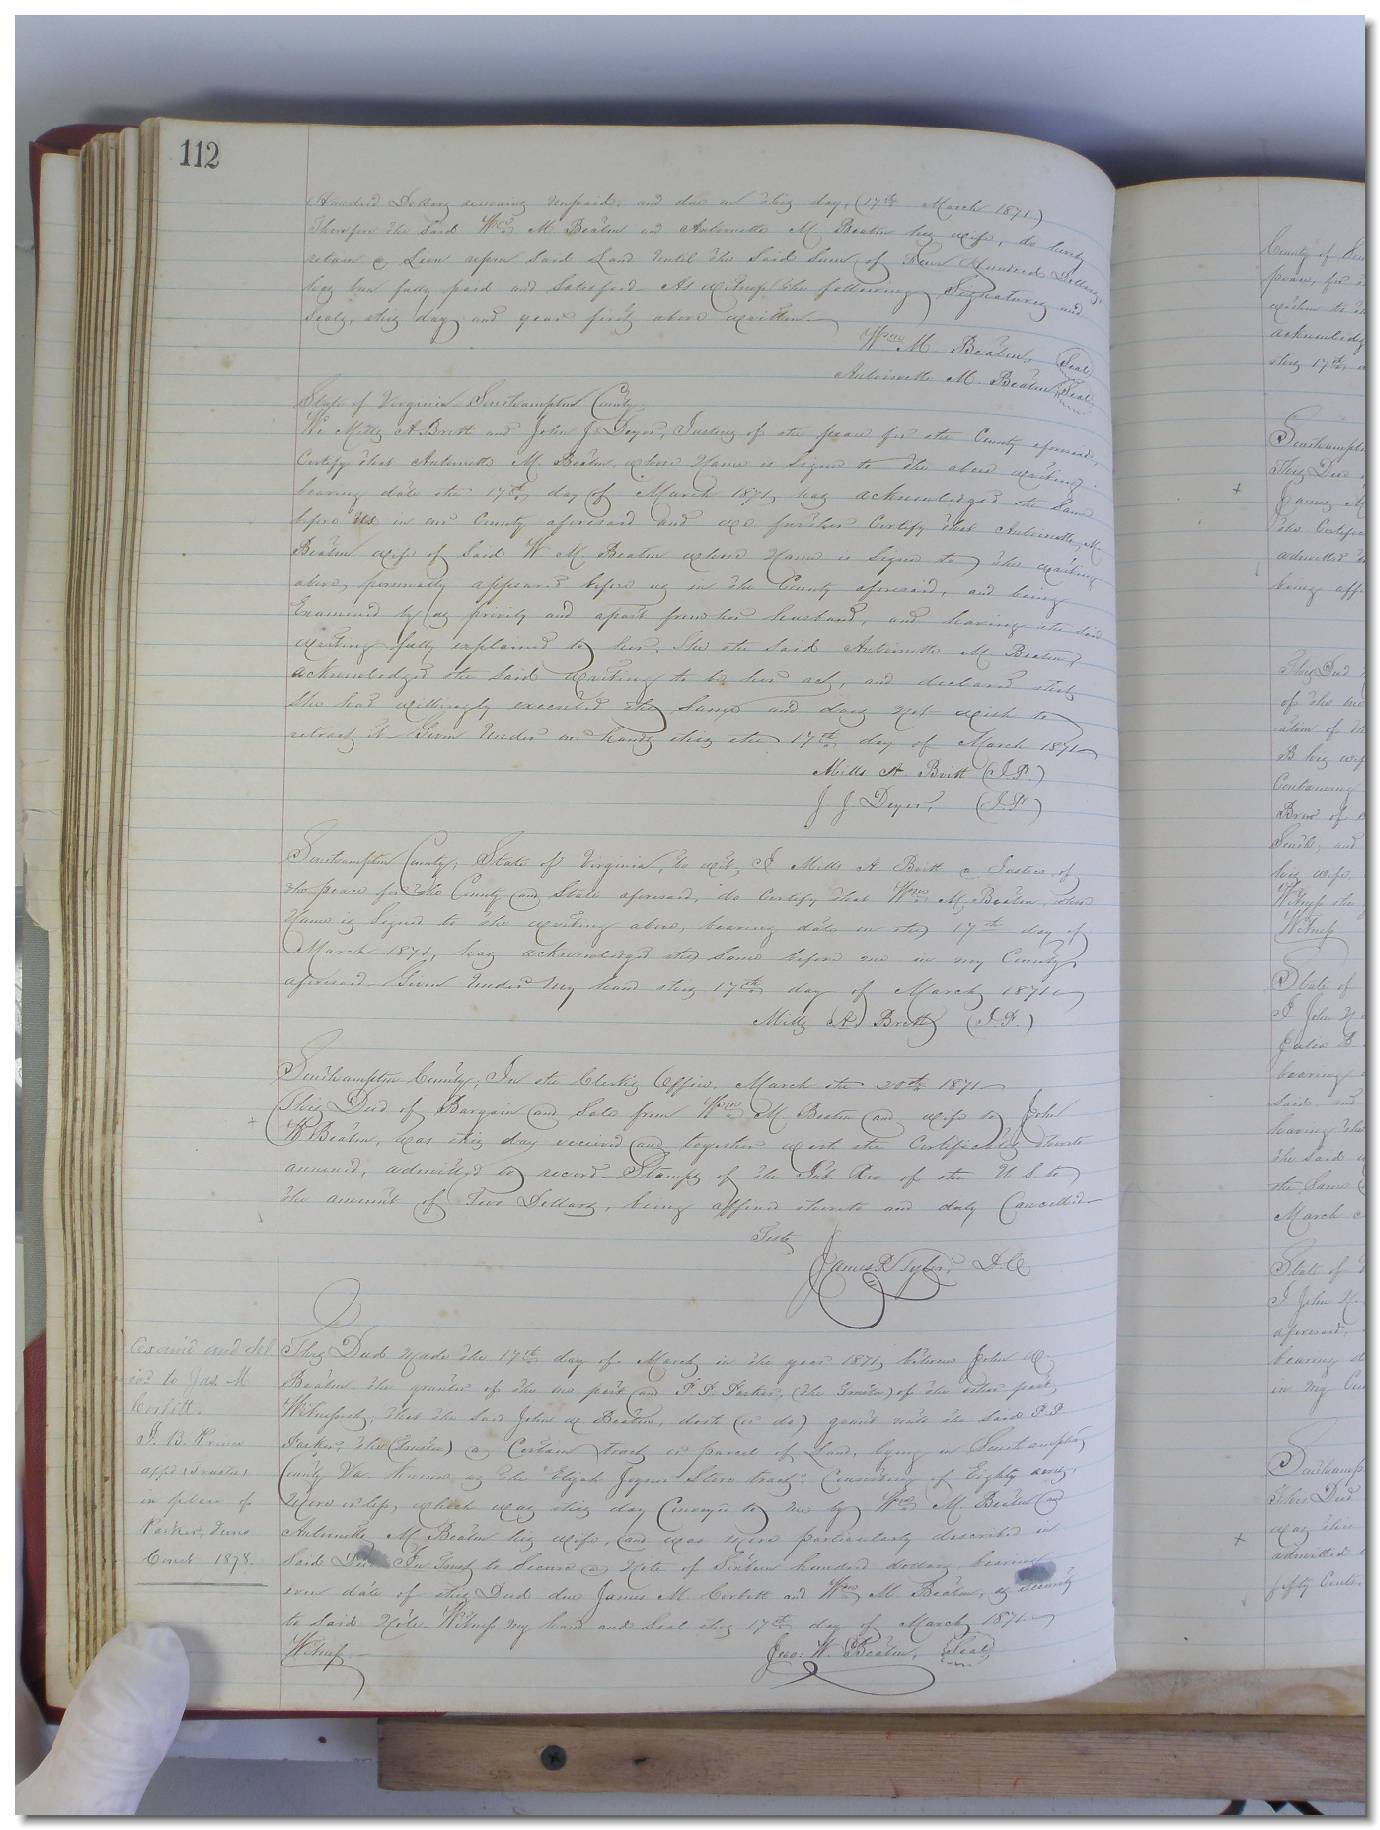 112
Hundred Dollars remains unpaid, and due on this day, (17th March 1871)
Therefore the said Wm M Beaton and Antoinette M Beaton his wife, do hereby
retain a Lien upon said Land until the said Sum of Hundred Dollars
has been fully paid and satisfied As witness the following Signatures and
Seals, this day and year first above written
Wm M Beaton, Seal
Antoinette M Beaton Seal
State of Virginia Southampton County
We Mills A Britt and John J Deyer, Justices of the peace for the County aforesaid,
Certify that Antoinette M. Beaton, whose Name is Signed to the above writing
bearing date the 17th day of March 1871, has acknowledged the same
before us in our County aforesaid and we further Certify that Antoinette M
Beaton wife of said W M Beaton whose Name is Signed to the writing
above, personally appeared before us in the County aforesaid, and being
Examined by us privily and apart from her husband, and having the said
writing fully explained to her, She the said Antoinette M Beaton
acknowledged the said writing to be her act, and declared that
She had willingly executed the same and does not wish to
retract it Given Under our hands this the 17th day of March 1871
Mills A Britt (J.P.)
J J Deyer, (J.P.)
Southampton County, State of Virginia, to wit, I Mills A Britt a Justice of
the peace for the County and State aforesaid, do Certify that Wm M. Beaton, whose
Name is Signed to the writing above, bearing date on the 17th day of
March 1871, has acknowledged the same before me in my County
aforesaid Given Under My hand this 17th day of March 1871
Mills A Britt (J.P.)
Southampton County, In the Clerk's Office, March the 20th 1871
This Deed of Bargain and Sale from Wm M. Beaton and wife to John
W Beaton, was this day received and together with the Certificates thereto
annexed, admitted to record Stamps of the Int Rev of the U S to
the amount of Two Dollars, being affixed thereto and duly Cancelled
Teste
James R Tyler, D.C.
This Deed Made the 17th day of March in the year 1871, between John W
Beaton the grantor of the one part and P. P. Parker, (the Trustee) of the other part,
Witnesseth, that the Said John W Beaton, doth (or do) grant unto the said P. P
Parker, the (Trustee) a Certain tract or parcel of Land, lying in Southampton
County Va. Known as the "Elijah Joyner Store tract" Consisting of Eighty acres,
More or less, which was this day Conveyed to me by Wm M. Beaton and
Antoinette M. Beaton his wife, and was more particularly described in
said Deed In Trust to Secure a Note of Sixteen hundred dollars, bearing
even date of this Deed due James M. Corbett and Wm M. Beaton, as security
to said Note. Witness my hand and Seal this 17th day of March 1871
Witness Jno: W. Beaton, Seal
Exam'd and del
iv'd to Jas. M
Corbett.
J. B. Prince
app'd Trustee
in place of
Parker, June
Court 1878.
County of
Southampton
This Deed
State of
I John
March
State of
I John
aforesaid,
bearing
in my
Southamp
This Deed
admitted
fifty Cents